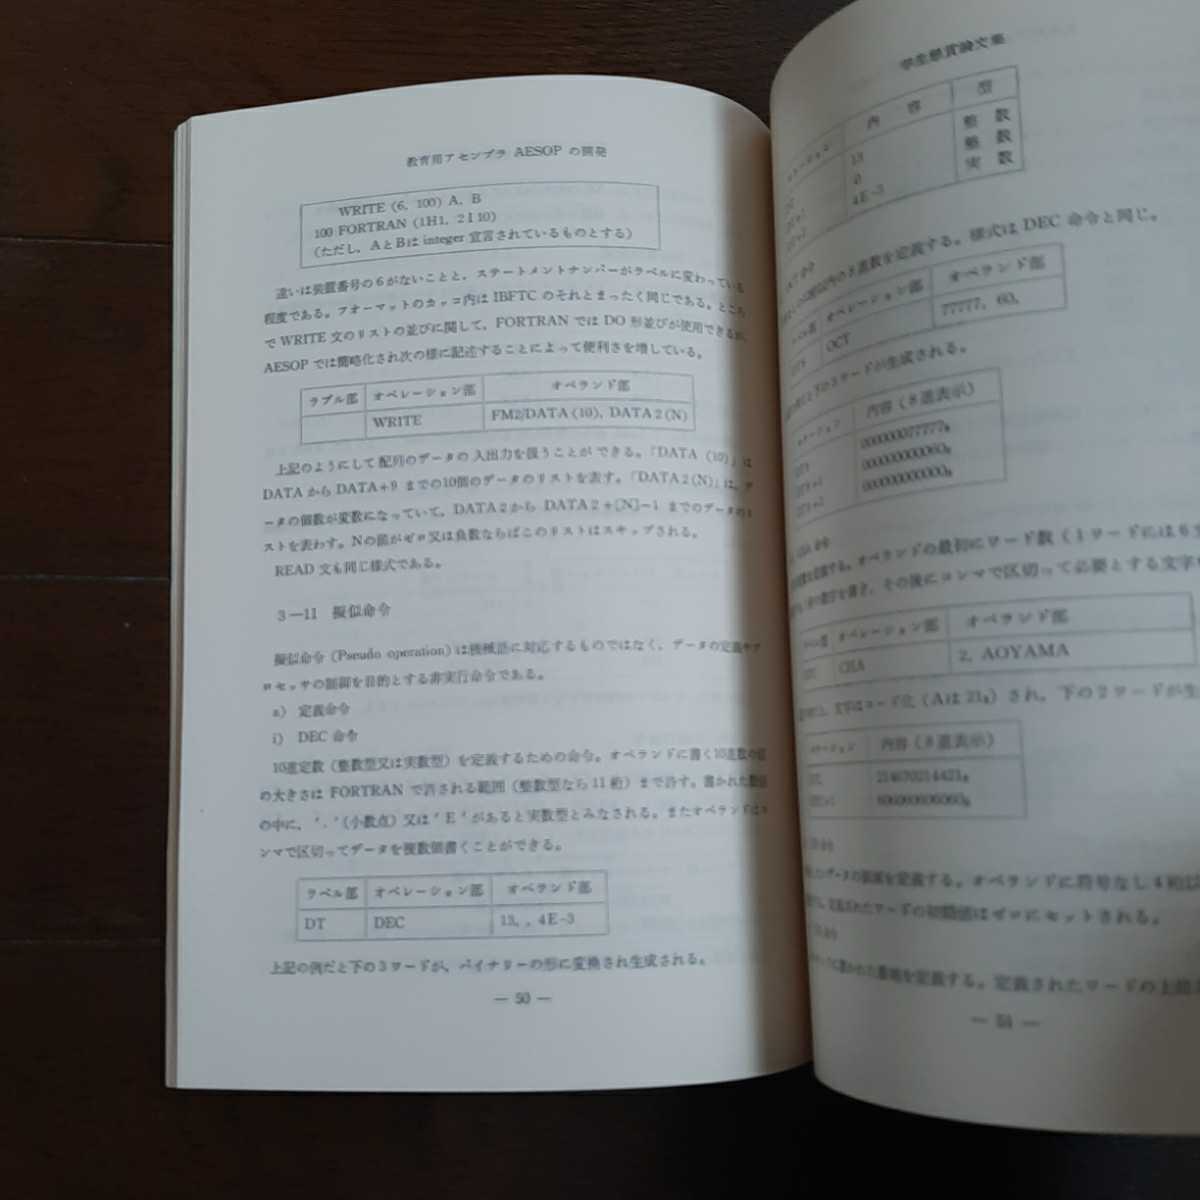 教育用アセンブラ AESOP の開発
WRITE (6, 100) A, B
100 FORTRAN (1H1, 2I10)
(ただし、AとBは integer 宣言されているものとする)
違いは装置番号の6がないことと、ステートメントナンバーがラベルに変わっている
程度である。フォーマットのカッコ内は IBFTC のそれとまったく同じである。ところ
で WRITE 文のリストの並びに関して、FORTRAN では DO 形並びが使用できるが、
AESOP では簡略化され次の様に記述することによって便利さを増している。
ラブル部 オペレーション部 オペランド部
WRITE FM2/DATA(10), DATA2(N)
上記のようにして配列のデータの入出力を扱うことができる。「DATA (10)」は
DATA から DATA+9 までの10個のデータのリストを表す。「DATA2(N)」は、デ
ータの個数が変数になっていて、DATA2から DATA2+[N]-1 までのデータのリ
ストを表わす。Nの値がゼロ又は負数ならばこのリストはスキップされる。
READ 文も同じ様式である。
3—11 擬似命令
擬似命令 (Pseudo operation) は機械語に対応するものではなく、データの定義やプ
ロセッサの制御を目的とする非実行命令である。
a) 定義命令
i) DEC 命令
10進定数(整数型又は実数型)を定義するための命令。オペランドに書く10進数の値
の大きさは FORTRAN で許される範囲(整数型なら11桁)まで許す。書かれた数値
の中に、'.'(小数点)又は'E'があると実数型とみなされる。またオペランドはコ
ンマで区切ってデータを複数個書くことができる。
ラベル部 オペレーション部 オペランド部
DT DEC 13, , 4E-3
上記の例だと下の3ワードが、バイナリーの形に変換され生成される。
— 50 —
学生懸賞論文集
内 容 型
13 整 数
0 整 数
4E-3 実 数
進数を定義する。様式は DEC 命令と同じ。
オペレーション部 オペランド部
OCT 77777, 60,
下の3ワードが生成される。
内容(8進表示)
000000077777₈
000000000060₈
000000000000₈
オペランドの最初にワード数(1ワードには6文
その後にコンマで区切って必要とする文字
オペレーション部 オペランド部
CHA 2, AOYAMA
コード化(Aは 21₈)され、下の2ワードが生
内容(8進表示)
214670214421₈
606060606060₈
データの領域を定義する。オペランドに符号なし4桁以
ワードの初期値はゼロにセットされる。
番地を定義する。定義されたワードの上位
— 51 —